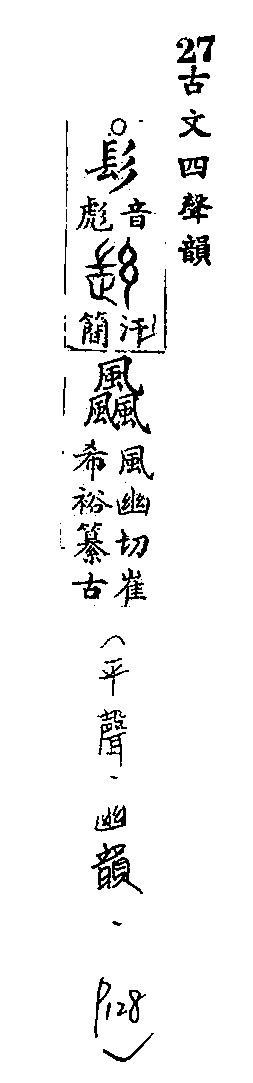 27古文四聲韻
髟
音彪
汗簡
飍
風幽切崔
希裕纂古
(平聲、幽韻、P128)